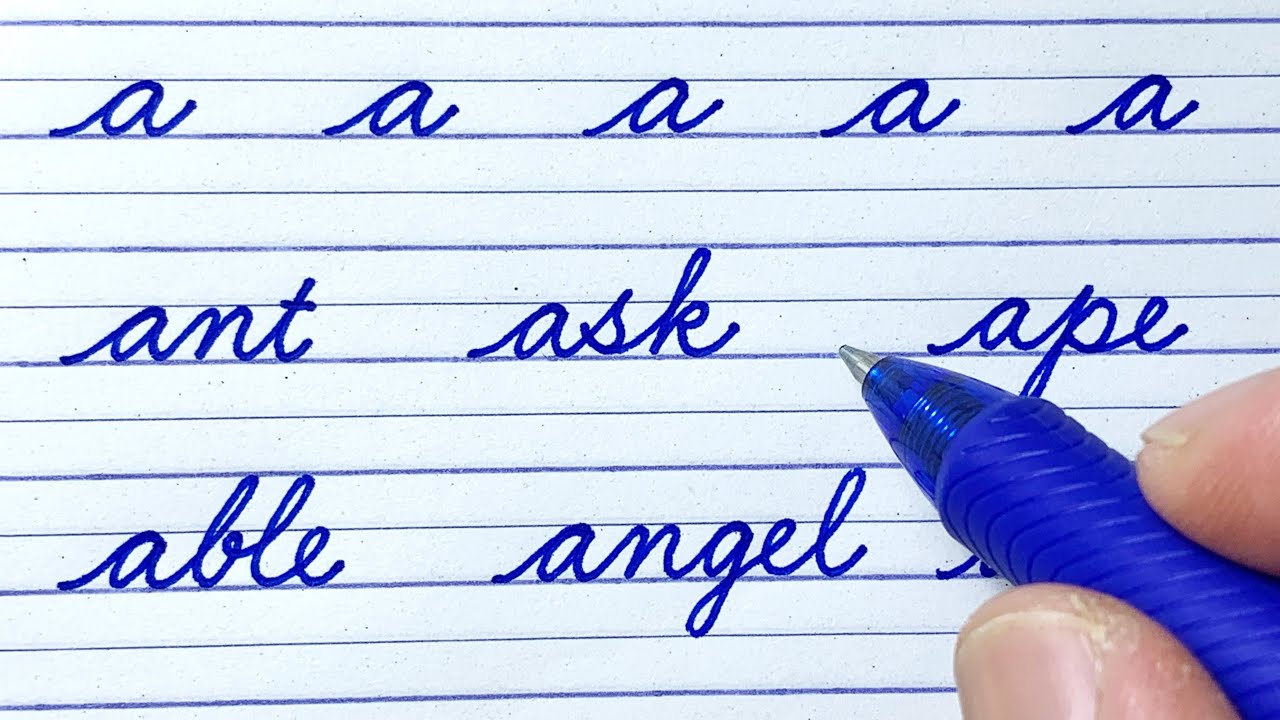 a a a a a
ant ask ape
able angel